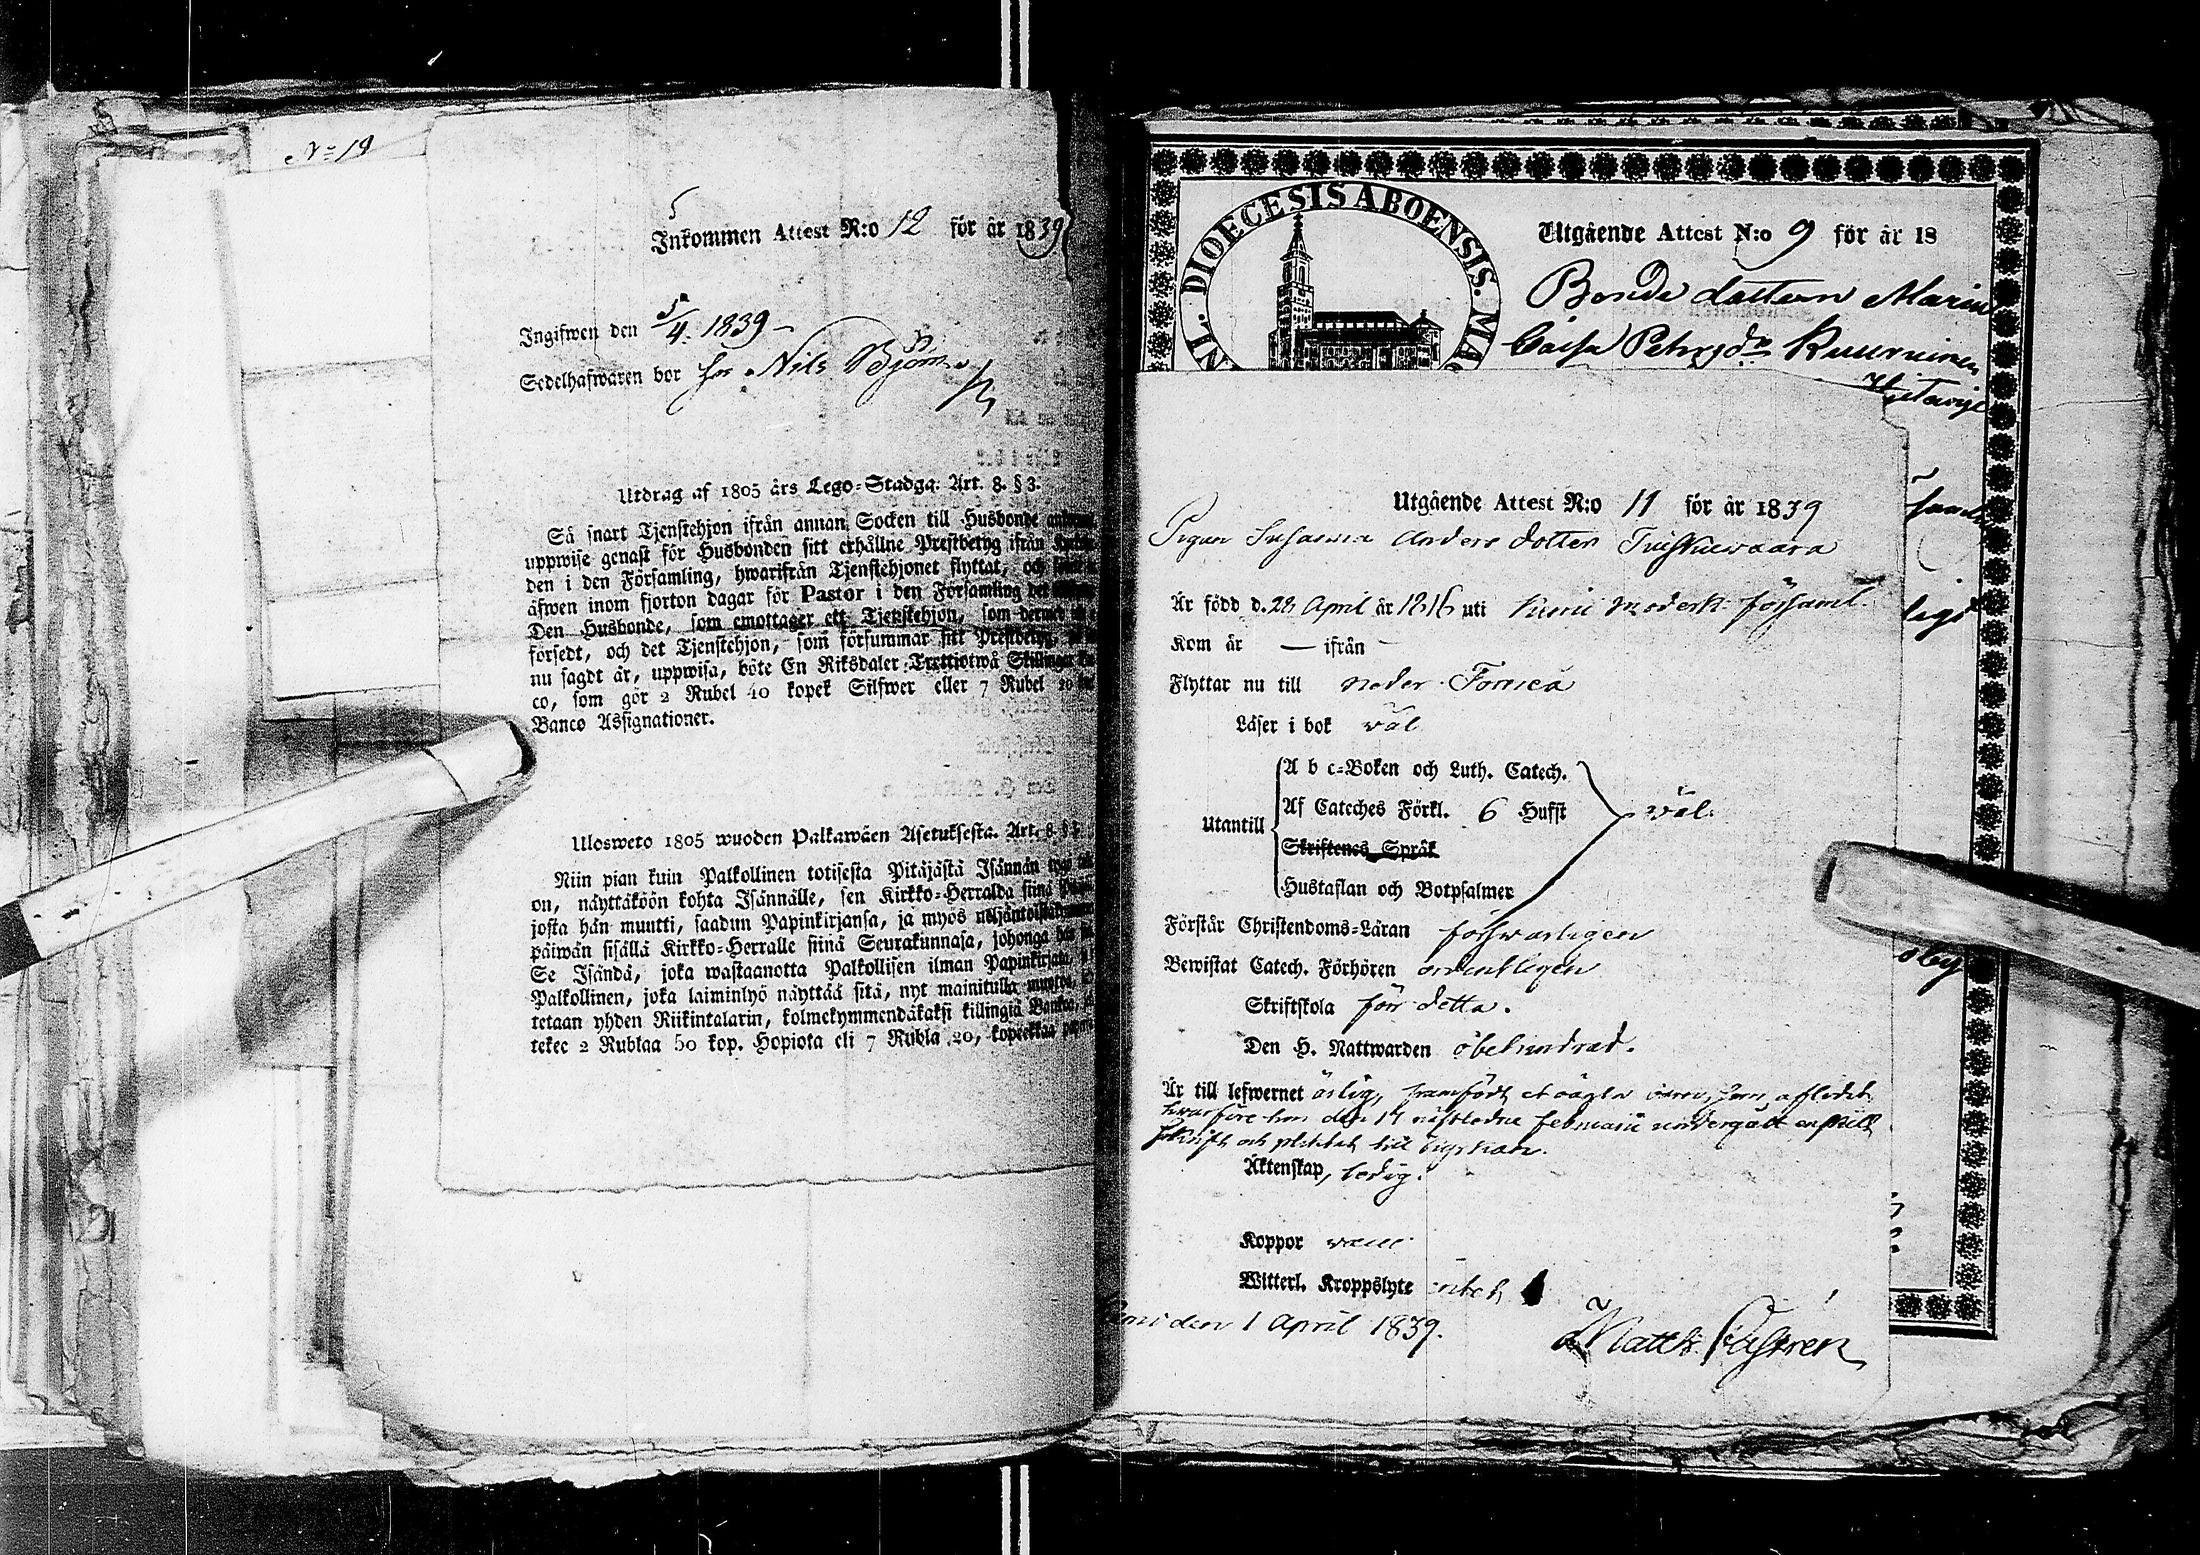 N:o 19
Inkommen Attest N:o 12 för år 1839
Ingifwen den 5/4 1839
Sedelhafwaren bor hos Nils Björn
Utdrag af 1805 års Lego-Stadga. Art. 8. § 3.
Så snart Tjenstehjon ifrån annan Socken till Husbonde
uppwise genast för Husbonden sitt erhållne Prestbetyg ifrån
den i den Församling, hwarifrån Tjenstehjonet flyttat, och
äfwen inom fjorton dagar för Pastor i den Församling det
Den Husbonde, som emottager ett Tjenstehjon, som dermed
försedt, och det Tjenstehjon, som försummar sitt Prestbetyg,
nu sagdt är, uppwisa, böte En Riksdaler Trettiotwå Skillingar
co, som gör 2 Rubel 40 kopek Silfwer eller 7 Rubel 20
Banco Assignationer.
Ulosweto 1805 wuoden Palkawäen Asetuksesta. Art. 8. §
Niin pian kuin Palkollinen totisesta Pitäjästä Isännän
on, näyttäköön kohta Isännälle, sen Kirkko-Herralda siinä
josta hän muutti, saadun Papinkirjansa, ja myös
päiwän sisällä Kirkko-Herralle siinä Seurakunnasa, johonga
Se Isändä, joka wastaanotta Palkollisen ilman Papinkirjata,
Palkollinen, joka laiminlyö näyttää sitä, nyt mainitulla
tetaan yhden Riikintalarin, kolmekymmendäkaksi killingiä Bankoa,
tekee 2 Rublaa 50 kop. Hopiota eli 7 Rubla 20, kopeekkaa
DIOECESIS ABOENSIS. MA
Utgående Attest N:o 9 för år 18
Bonde dottern Maria
Caisa Petersdr Kuurinen
Utgående Attest N:o 11 för år 1839
Pigan Susanna Anders dotter
Är född d. 28 April år 1816 uti Kemi Modersk. församl.
Kom år — ifrån —
Flyttar nu till neder Torneå
Läser i bok väl
Utantill
A b c-Boken och Luth. Catech.
Af Cateches Förkl. 6 Hufst väl.
Skriftenes Språk
Hustaflan och Botpsalmer
Förstår Christendoms-Läran förswarligen
Bewistat Catech. Förhören ordentligen
Skriftskola för detta.
Den H. Nattwarden obehindrad.
Är till lefwernet ärlig, framfödt et oägta barn, som aflidit,
hwarföre hon den 14 nästledne Februarii undergått enskilt
skrift och pliktat till kyrkan.
Äktenskap, ledig.
Koppor
Witterl. Kroppslyte intet
Kemi den 1 April 1839.
Matth. Castrén